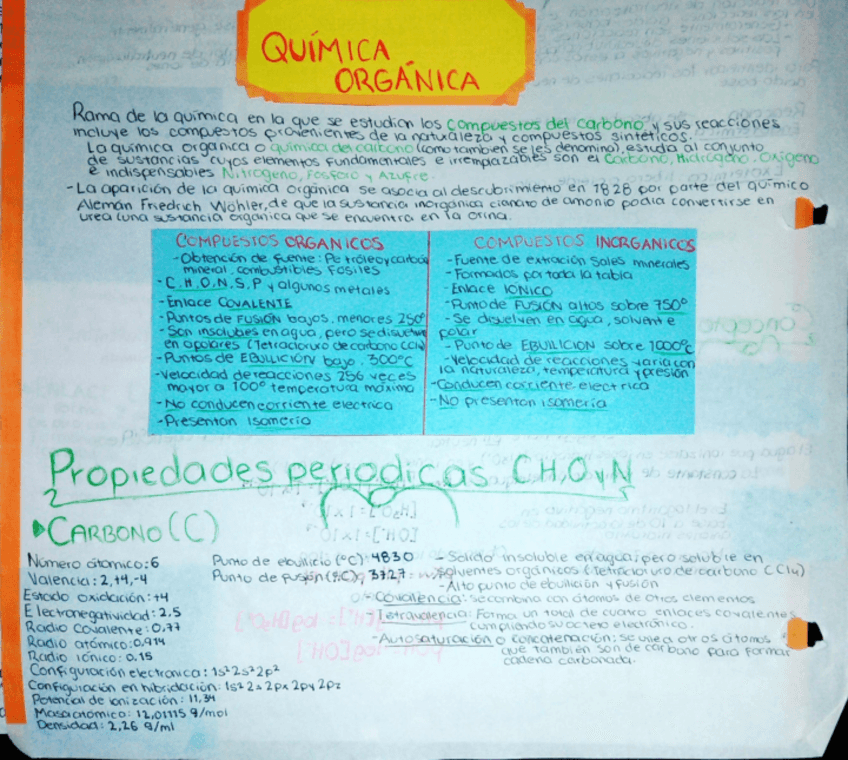 QUÍMICA
ORGÁNICA
Rama de la química en la que se estudian los compuestos del carbono y sus reacciones
incluye los compuestos provenientes de la naturaleza y compuestos sintéticos.
La química orgánica o química del carbono (como también se les denomina), estudia al conjunto
de sustancias cuyos elementos fundamentales e irremplazables son el Carbono, Hidrógeno, Oxígeno
e indispensables Nitrogeno, Fosforo y Azufre.
- La aparición de la química orgánica se asocia al descubrimiento en 1828 por parte del químico
Alemán Friedrich Wöhler, de que la sustancia inorgánica cianato de amonio podía convertirse en
urea (una sustancia orgánica que se encuentra en la orina.
COMPUESTOS ORGANICOS
- Obtención de fuente: Petróleo y carbón
mineral, combustibles fósiles
- C, H, O, N, S, P y algunos metales
- Enlace COVALENTE
- Puntos de FUSIÓN bajos, menores 250°
- Son insolubes en agua, pero se disuelven
en apolares (Tetracloruro de carbono CCl4
- Puntos de EBULICIÓN bajo. 300°C
- Velocidad de reacciones 256 veces
mayor a 100° temperatura máxima
- No conducen corriente electrica
- Presentan isomería
COMPUESTOS INORGANICOS
- Fuente de extración sales minerales
- Formados por toda la tabla
- Enlace IONICO
- Punto de FUSIÓN altos sobre 750°
- Se disuelven en agua, solvente
polar
- Punto de EBULICION sobre 1000°C
- Velocidad de reacciones varia con
la naturaleza, temperatura y presión
- Conducen corriente electrica
- No presentan isomería
Propiedades periodicas C,H,O y N
CARBONO (C)
Número átomico: 6
Valencia: 2, +4, -4
Estado oxidación: +4
Electronegatividad: 2,5
Radio covalente: 0,77
Radio atómico: 0,914
Radio iónico: 0.15
Configuración electronica: 1s² 2s² 2p²
Configuración en hibridación: 1s² 2s 2px 2py 2pz
Potencial de ionización: 11,34
Masa atómico: 12,01115 g/mol
Densidad: 2,26 g/ml
Punto de ebullicio (°C): 4830
Punto de fusión (°C): 3727
- Solido insoluble en agua, pero soluble en
solventes orgánicos (Tetracloruro de carbono CCl4)
- Alto punto de ebullición y fusión
- Covalencia: se combina con átomos de otros elementos
- Tetravalencia: Forma un total de cuatro enlaces covalentes,
cumpliendo su octeto electrónico.
- Autosaturación o concatenación: se une a otros átomos
que también son de carbono para formar
cadena carbonada.